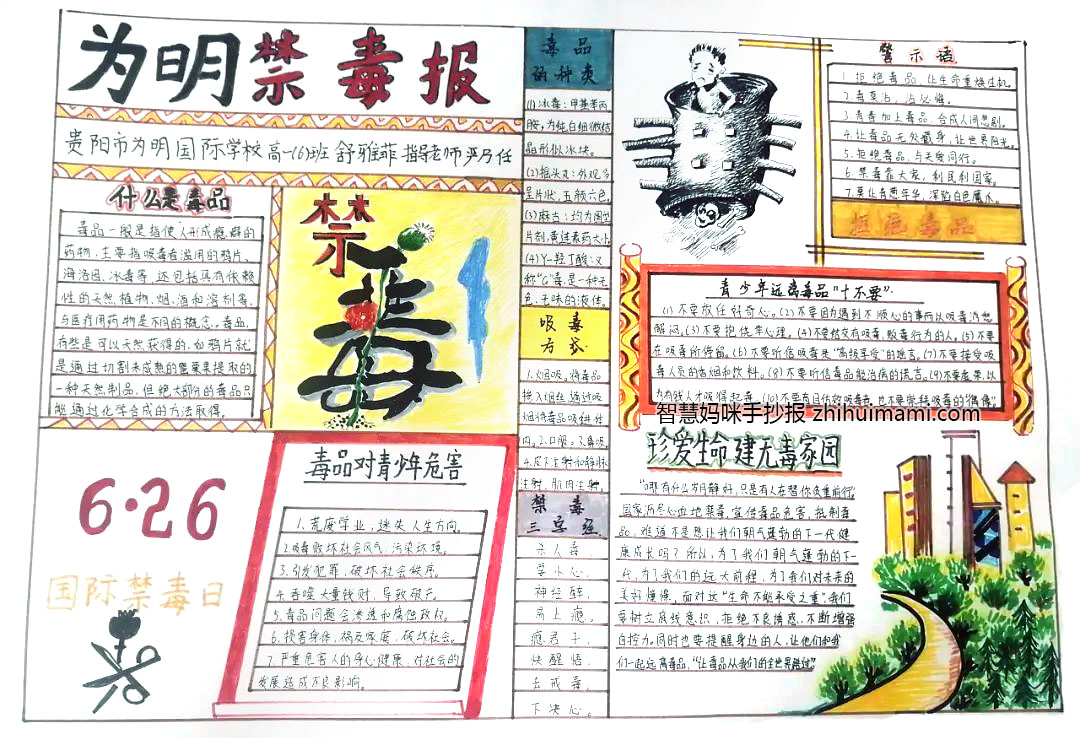 为明禁毒报
贵阳市为明国际学校高一(6)班 舒雅菲 指导老师 严乃任
什么是毒品
毒品一般是指使人形成瘾癖的
药物,主要指吸毒者滥用的鸦片、
海洛因、冰毒等,还包括具有依赖
性的天然植物、烟、酒和溶剂等,
与医疗用药物是不同的概念。毒品,
有些是可以天然获得的,如鸦片就
是通过切割未成熟的罂粟果提取的
一种天然制品,但绝大部份的毒品只
能通过化学合成的方法取得。
禁毒
6·26
国际禁毒日
毒品对青少年危害
1.荒废学业,迷失人生方向。
2.吸毒败坏社会风气,污染环境。
3.引发犯罪,破坏社会秩序。
4.吞噬大量钱财,导致破产。
5.毒品问题会渗透和腐蚀政权。
6.损害身体,祸及家庭,破坏社会。
7.严重危害人的身心健康,对社会的
发展造成不良影响。
毒品
的种类
(1)冰毒:甲基苯丙
胺,为纯白细微结
晶形似冰块。
(2)摇头丸:外观多
呈片状,五颜六色,
(3)麻古:均为圆型
片剂,黄连素药大小
(4)Y-羟丁酸:又
称“G”毒,是一种无
色、无味的液体。
吸毒
方式
1.烟吸,将毒品
掺入烟丝,通过吸
烟将毒品吸进体
内。2.口服。3.鼻吸。
4.皮下注射和静脉
注射,肌肉注射。
禁毒
三字经
杀人毒,
要小心,
神经醉,
易上瘾。
瘾君子,
快醒悟,
去戒毒,
下决心。
警示语
1.拒绝毒品,让生命重焕生机。
2.毒莫沾,沾必悔。
3.青春加上毒品,合成人间悲剧。
4.让毒品无处藏身,让世界阳光。
5.拒绝毒品,与关爱同行。
6.禁毒靠大家,利民利国家。
7.莫让青葱年华,深陷白色魔爪。
拒绝毒品
青少年远离毒品“十不要”
(1)不要放任好奇心。(2)不要因为遇到不顺心的事而以吸毒消愁
解闷。(3)不要抱侥幸心理。(4)不要结交有吸毒、贩毒行为的人。(5)不要
在吸毒所停留。(6)不要听信吸毒是“高级享受”的谣言。(7)不要接受吸
毒人员的香烟和饮料。(8)不要听信毒品能治病的谎言。(9)不要虚荣,以
为有钱人才吸得起毒。(10)不要盲目仿效吸毒者,也不要学择吸毒的“偶像”
智慧妈咪手抄报 zhihuimami.com
珍爱生命 建无毒家园
“哪有什么岁月静好,只是有人在替你负重前行”
国家历尽心血地禁毒,宣传毒品危害,抵制毒
品,难道不是想让我们朝气蓬勃的下一代健
康成长吗?所以,为了我们朝气蓬勃的下一
代,为了我们的远大前程,为了我们对未来的
美好憧憬,面对这“生命不能承受之重”,我们
要树立底线意识,拒绝不良诱惑,不断增强
自控力。同时也要提醒身边的人,让他们和我
们一起远离毒品,“让毒品从我们的全世界路过”